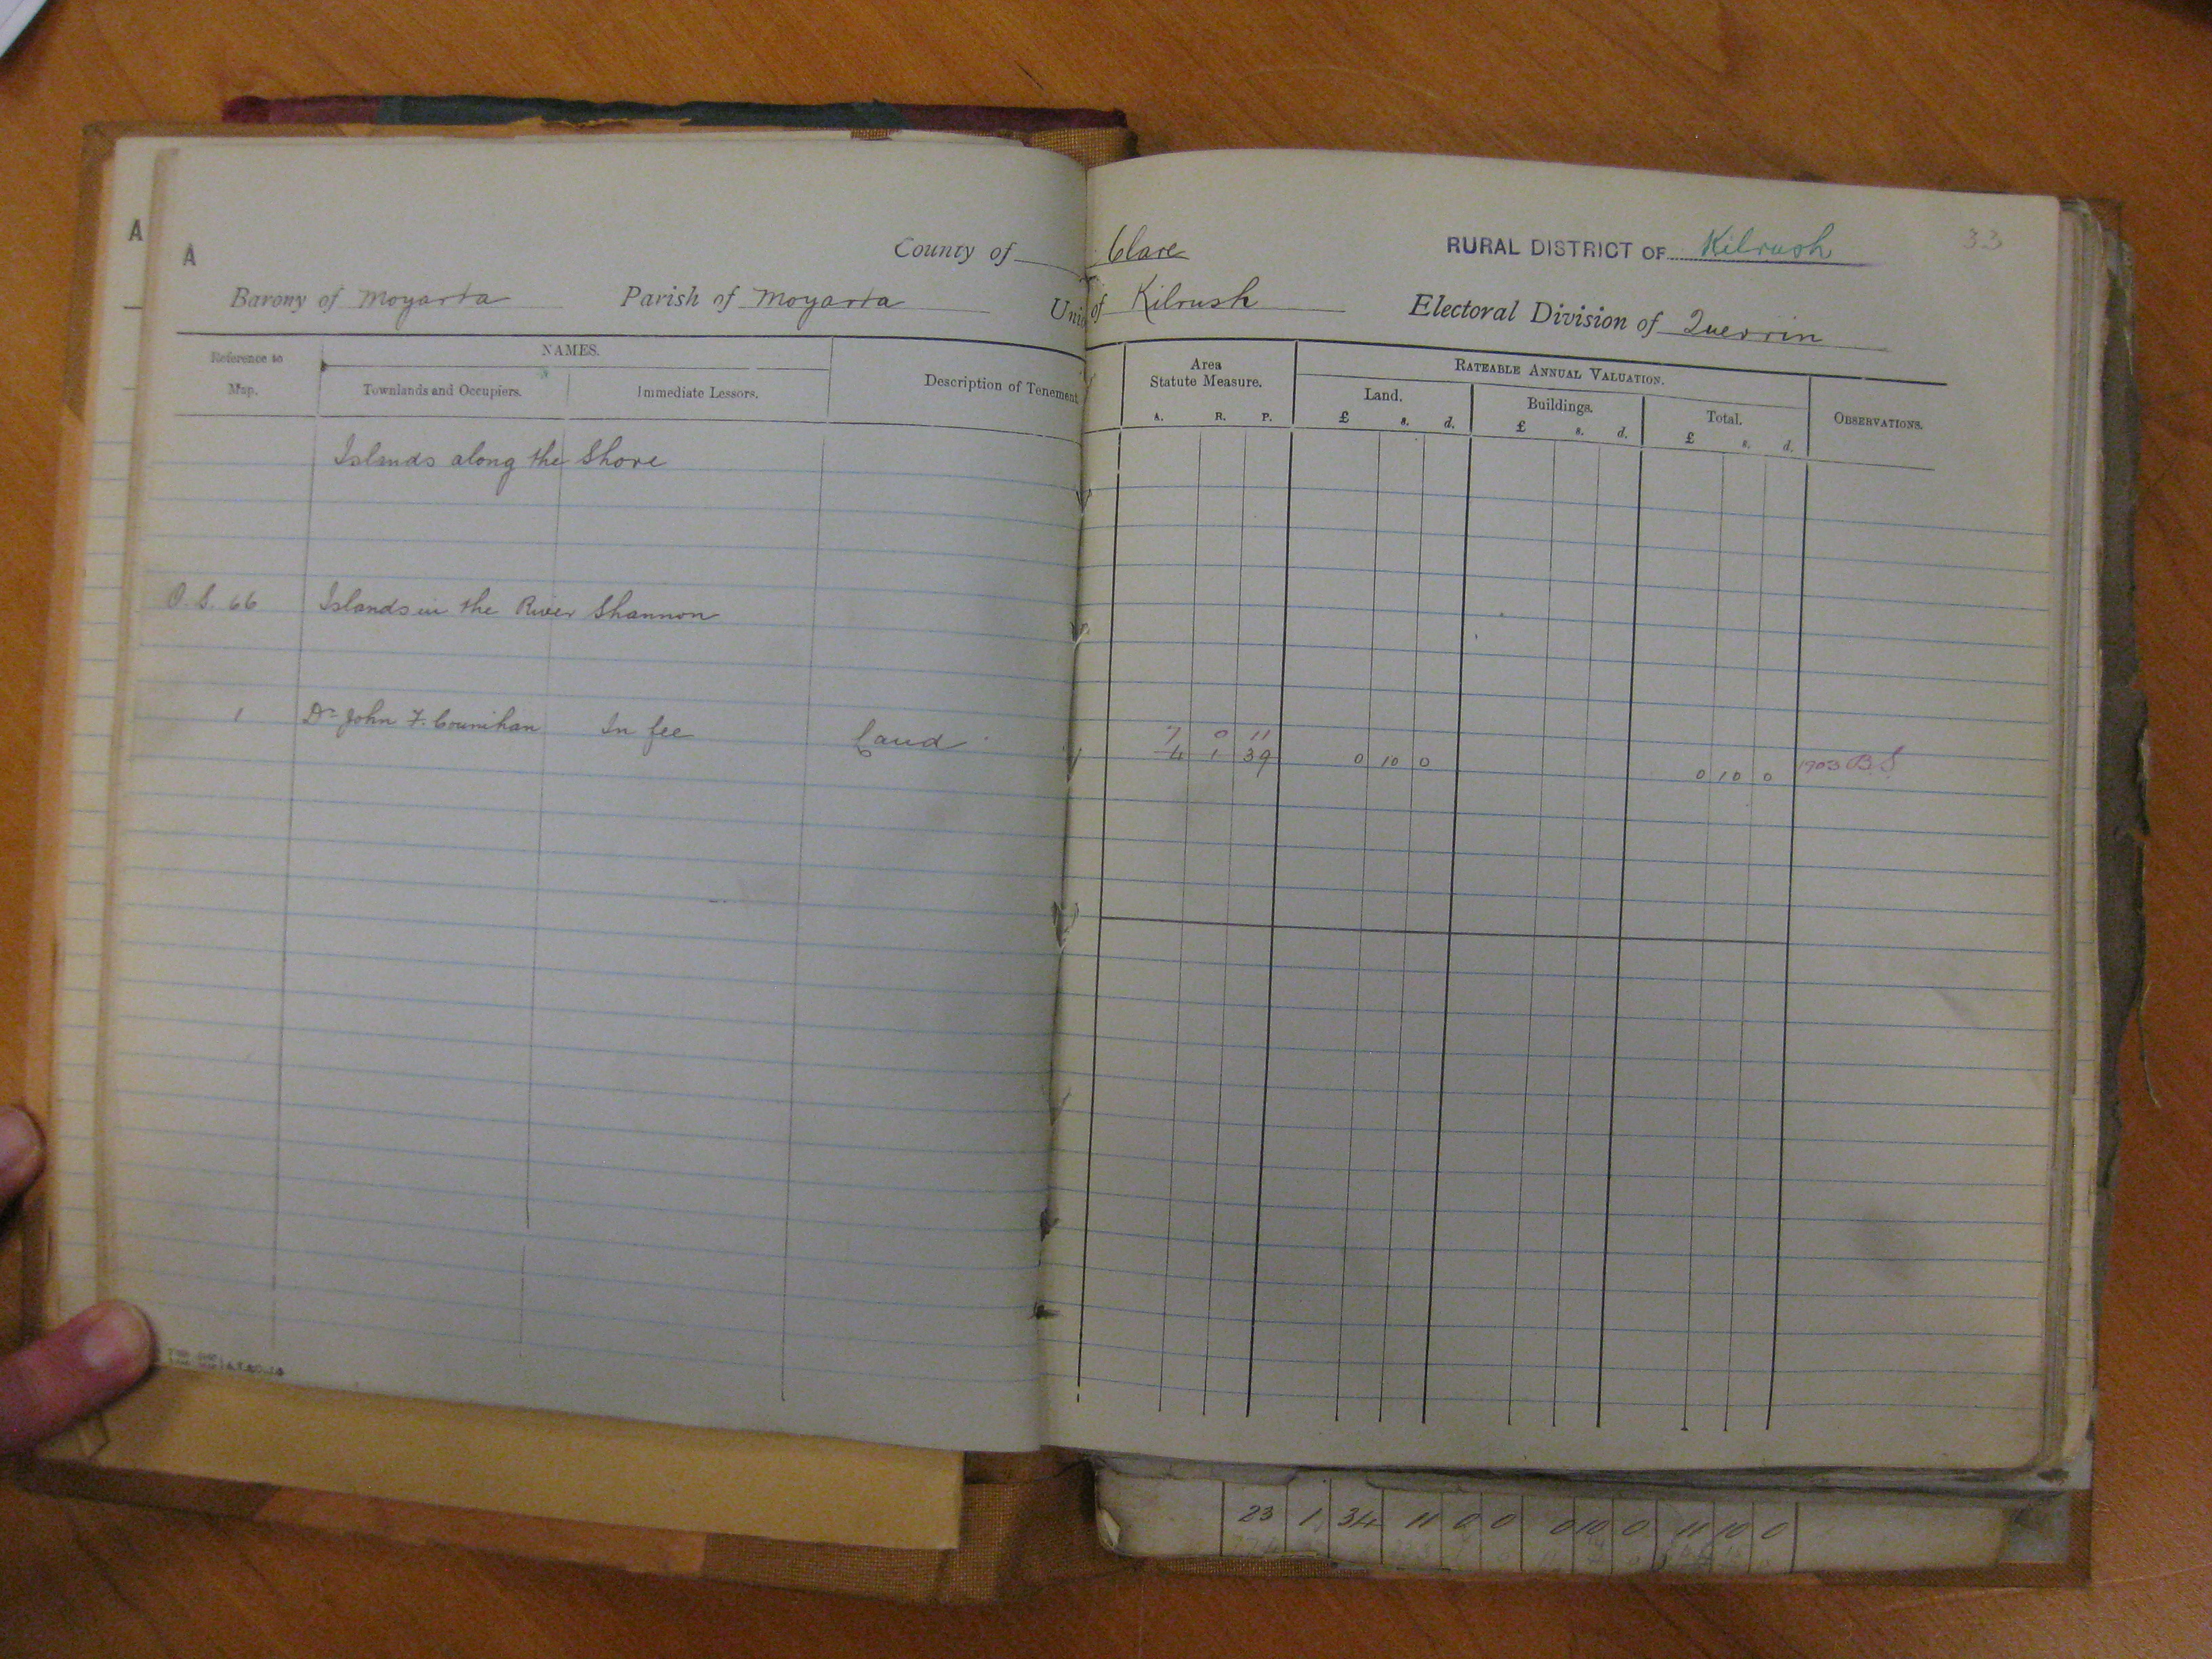 A
A
County of Clare
RURAL DISTRICT OF Kilrush
33
Barony of Moyarta Parish of Moyarta Union of Kilrush Electoral Division of Querrin
Reference to Map.
NAMES.
Townlands and Occupiers.
Immediate Lessors.
Description of Tenement
Area Statute Measure.
A. R. P.
RATEABLE ANNUAL VALUATION.
Land.
£ s. d.
Buildings.
£ s. d.
Total.
£ s. d.
OBSERVATIONS.
Islands along the Shore
O.S. 66 Islands in the River Shannon
7 0 11
1 Dr John F. Counihan In fee Land 4 1 39 0 10 0 0 10 0 1903 B.S
23 1 34 11 0 0 0 10 0 11 10 0